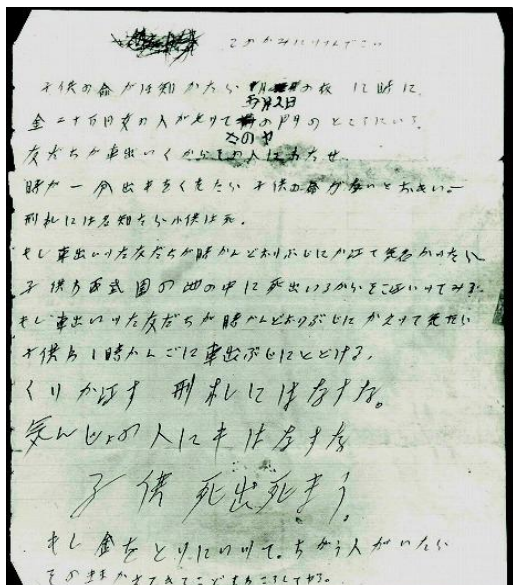 このかみにツツんでこい
子供の命がほ知かたら の夜12時に、
五月2日
金二十万円女の人がもツて の門のところにいろ。
さのヤ
友だちが車出いくからその人にわたせ。
時が一分出もをくれたら子供の命がないとおもい。ー
刑札には名知たら小供は死。
もし車出いツた友だちが時かんどおりぶじにか江て気名かツたら
子供わ西武園の池の中に死出いるからそこ江いツてみろ。
もし車出いツた友だちが時かんどおりぶじにかえツて気たら
子供わ1時かんごに車出ぶじにとどける、
くりか江す 刑札にはなすな。
気んじょの人にもはなすな
子供死出死まう。
もし金をとりにいツて、ちがう人がいたら
そのままかえてきてこどもわころしてヤる。